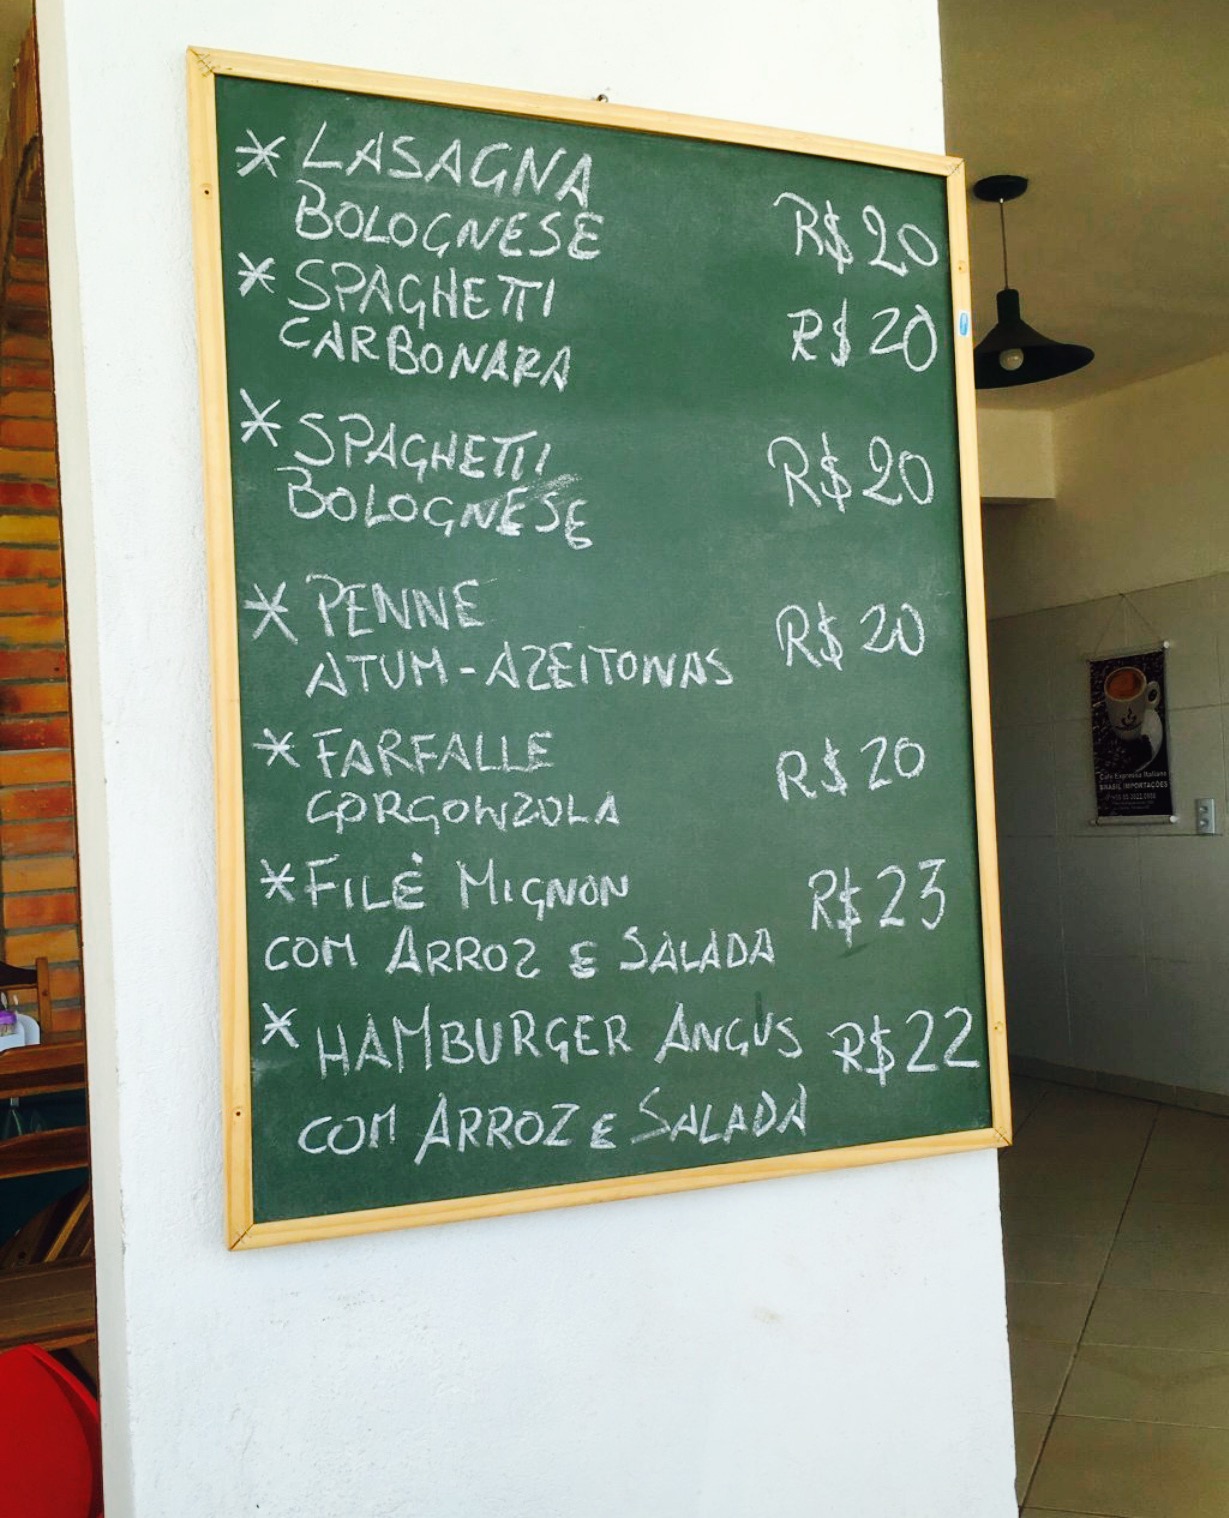 * LASAGNA
BOLOGNESE R$ 20
* SPAGHETTI
CARBONARA R$ 20
* SPAGHETTI
BOLOGNESE R$ 20
* PENNE
ATUM-AZEITONAS R$ 20
* FARFALLE
GORGONZOLA R$ 20
* FILÉ MIGNON R$ 23
COM ARROZ E SALADA
* HAMBURGER ANGUS R$ 22
COM ARROZ E SALADA
Café Expresso Italiano
BRASIL IMPORTAÇÕES